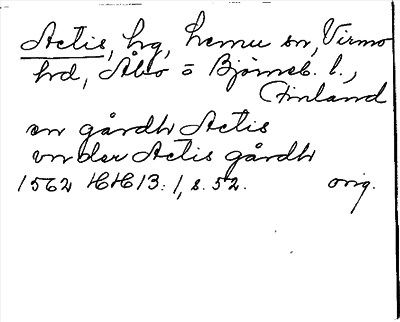 Actis, hg, Lemu sn, Virmo
hd, Åbo o Bjørneb. l.,
Finland
en gårdh Actis
vnder Actis gårdh
1562 HH 13:1, s. 52. orig.